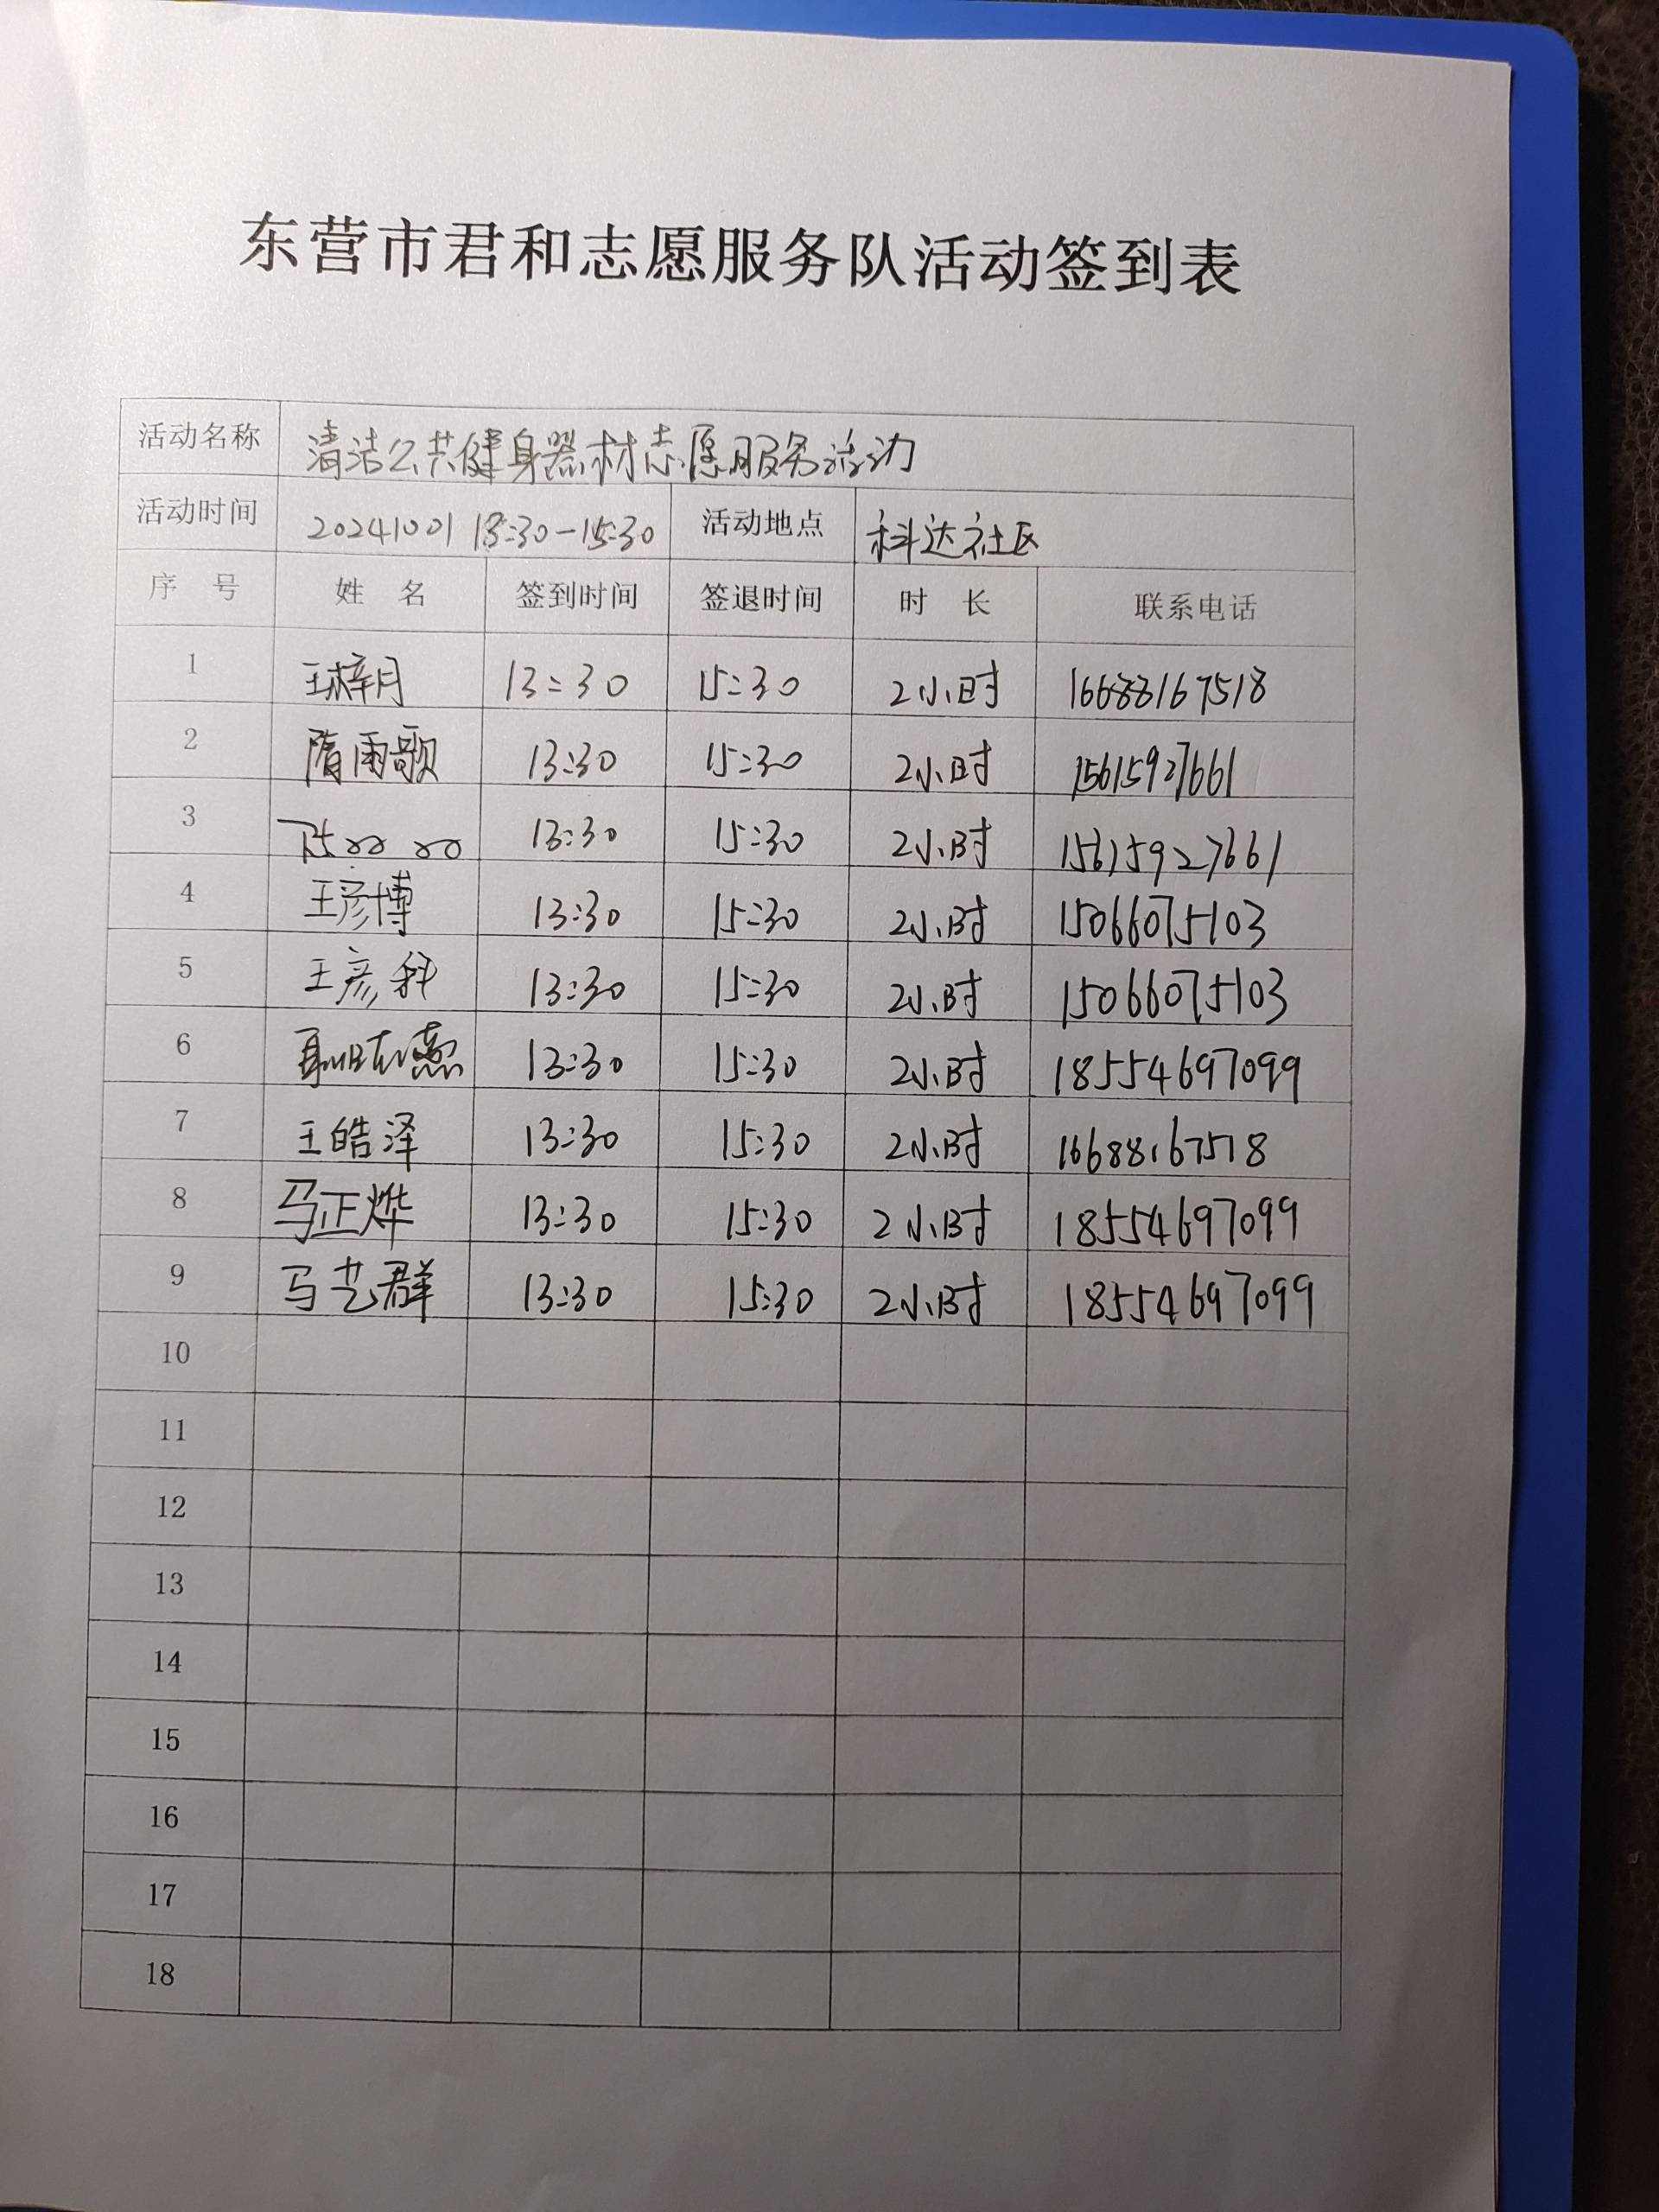 东营市君和志愿服务队活动签到表
活动名称 清洁公共健身器材志愿服务活动
活动时间 20241001 13:30-15:30 活动地点 科达社区
序 号 姓 名 签到时间 签退时间 时 长 联系电话
1 王梓月 13:30 15:30 2小时 16688167518
2 隋雨歌 13:30 15:30 2小时 15615927661
3 13:30 15:30 2小时 15615927661
4 王彦博 13:30 15:30 2小时 15066075103
5 王彦科 13:30 15:30 2小时 15066075103
6 13:30 15:30 2小时 18554697099
7 王皓泽 13:30 15:30 2小时 16688167518
8 马正烨 13:30 15:30 2小时 18554697099
9 马艺群 13:30 15:30 2小时 18554697099
10
11
12
13
14
15
16
17
18